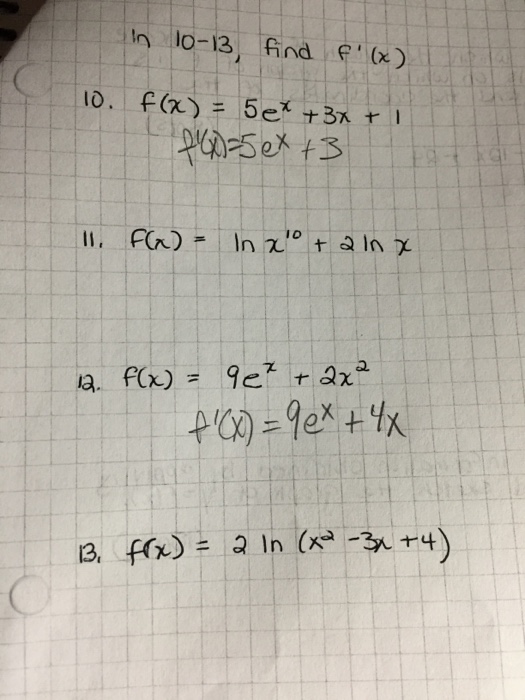 in 10-13, find f'(x)
10. f(x) = 5eˣ + 3x + 1
f'(x)=5eˣ + 3
11. f(x) = ln x¹⁰ + 2 ln x
12. f(x) = 9eˣ + 2x²
f'(x) = 9eˣ + 4x
13. f(x) = 2 ln (x² - 3x + 4)